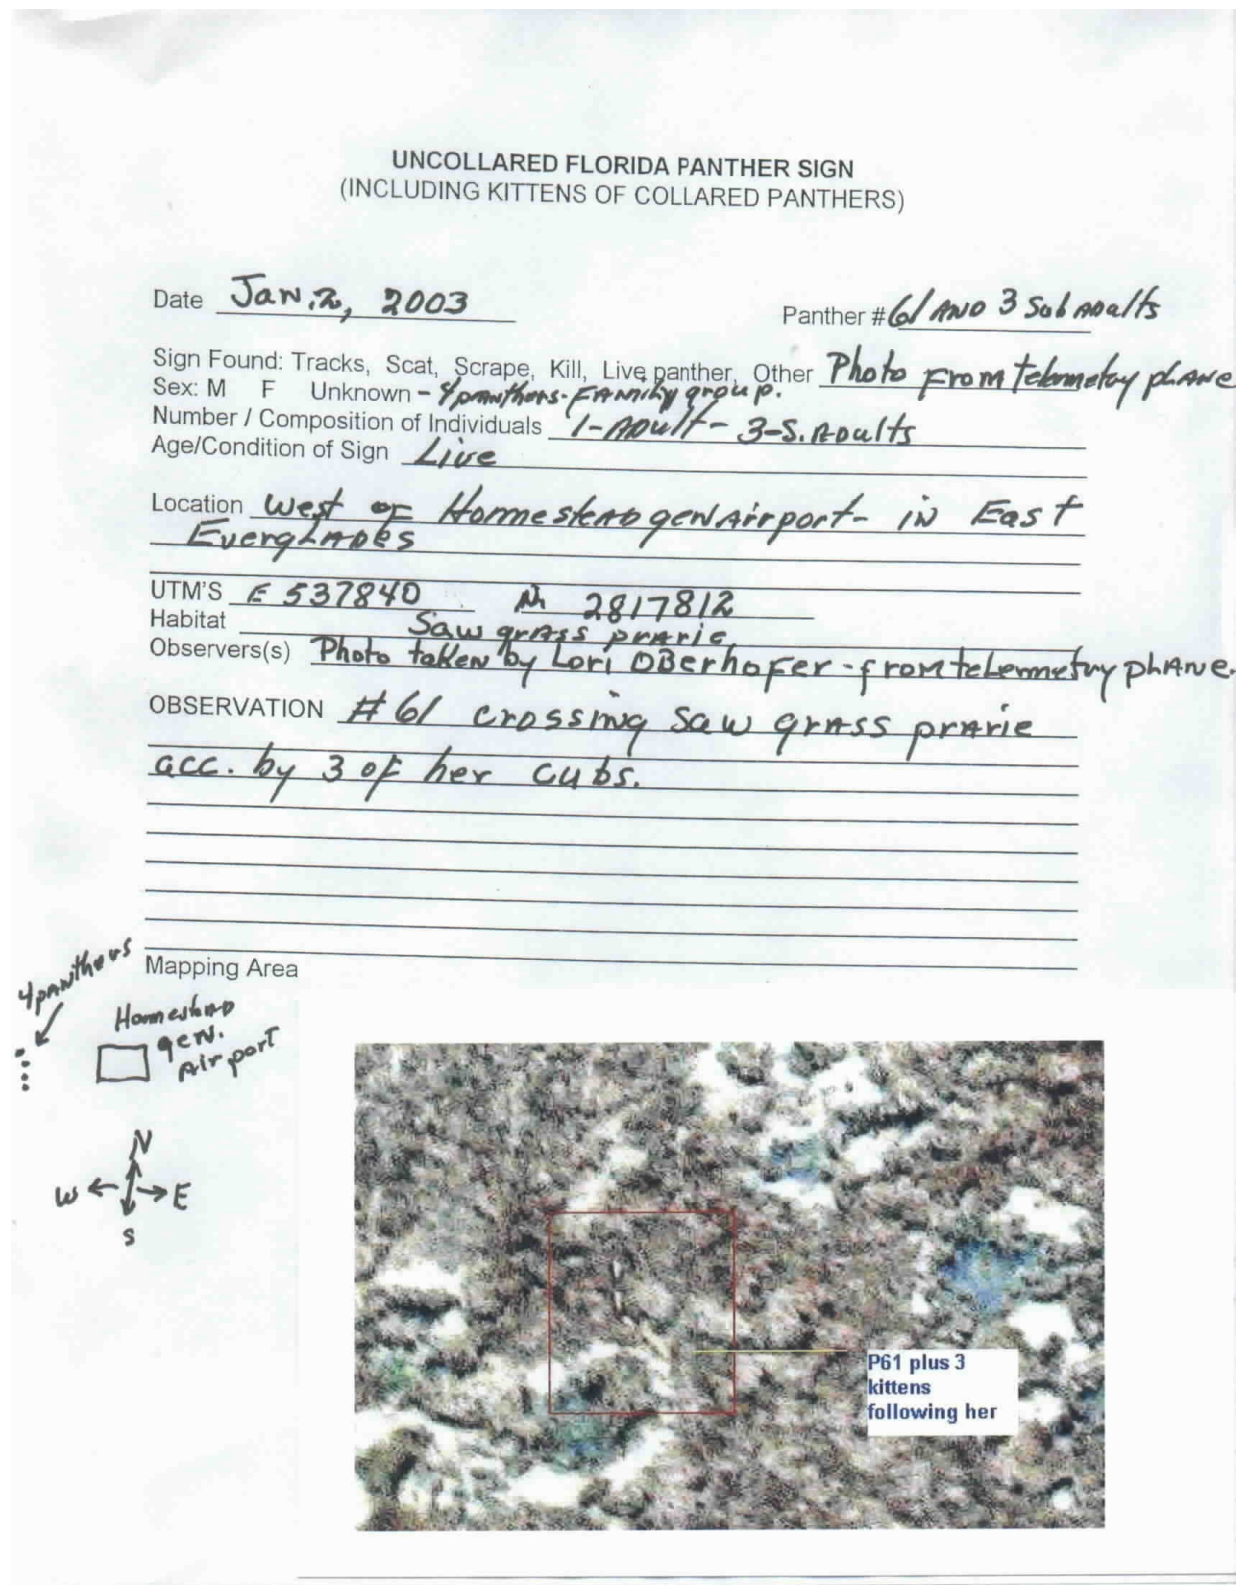 UNCOLLARED FLORIDA PANTHER SIGN
(INCLUDING KITTENS OF COLLARED PANTHERS)
Date Jan. 2, 2003
Panther # 61 AND 3 Sub Adults
Sign Found: Tracks, Scat, Scrape, Kill, Live panther, Other Photo From telemetry plane
Sex: M F Unknown - 4 panthers - Family group.
Number / Composition of Individuals 1-Adult - 3-S. Adults
Age/Condition of Sign Live
Location West of Homestead gen Airport - in East
Everglades
UTM'S E 537840 N 2817812
Habitat Saw grass prarie
Observers(s) Photo taken by Lori Oberhofer - from telemetry plane.
OBSERVATION #61 crossing saw grass prarie
acc. by 3 of her cubs.
Mapping Area
4 panthers
Homestead
gen.
Airport
N
W E
S
P61 plus 3
kittens
following her